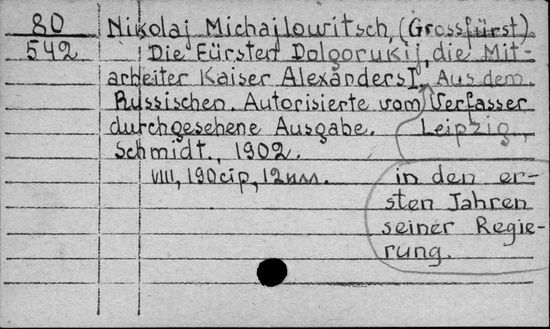 80 Nikolaj Michajlowitsch, (Grossfürst).
542 Die Fürsten Dolgorukij, die Mit-
arbeiter Kaiser Alexanders I. Aus dem
Russischen. Autorisierte vom Verfasser
durchgesehene Ausgabe. Leipzig.,
Schmidt., 1902.
VIII, 190 cip, 12 илл.
in den er-
sten Jahren
seiner Regie-
rung.